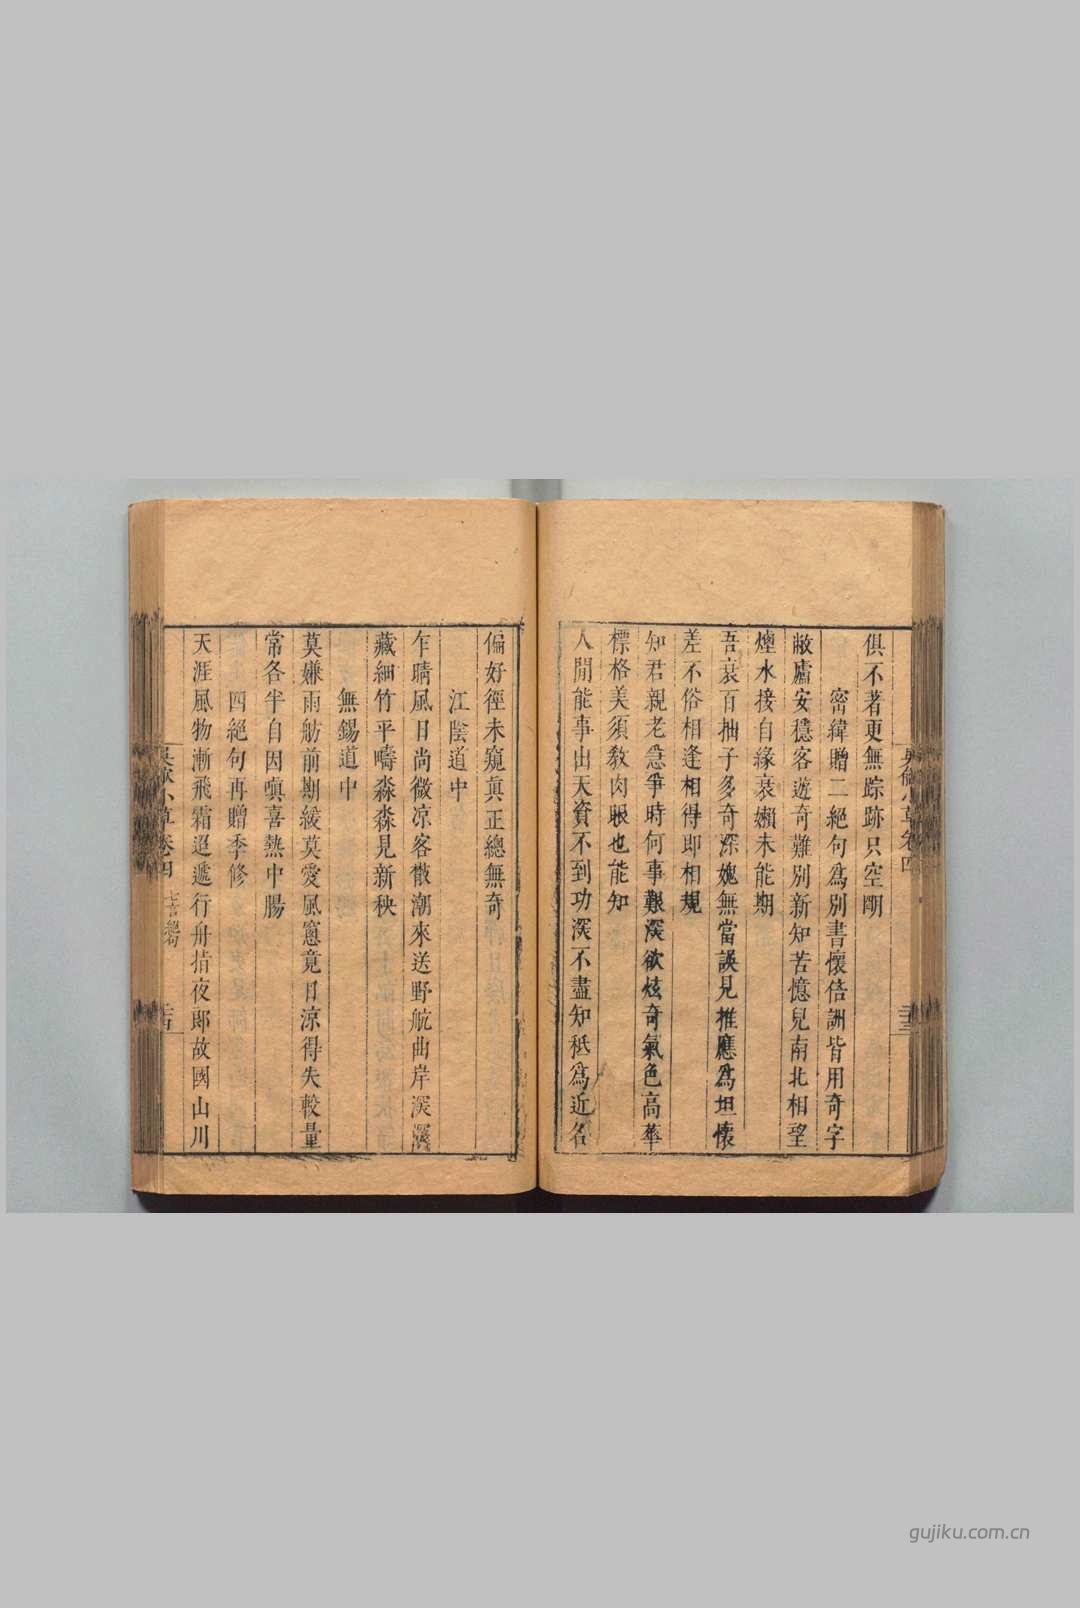 俱不著更無踪跡只空朙
密緯贈二絕句爲別書懷倍詶皆用奇字
敝廬安穩客遊奇難別新知苦憶兒南北相望
煙水接自緣衰嬾未能期
吾衰百拙子多奇深媿無當誤見推應爲坦懷
差不俗相逢相得卽相規
知君親老急爭時何事艱深欲炫奇氣色高華
標格美須敎肉眼也能知
人閒能事出天資不到功深不盡知秪爲近名
卷四
偏好徑未窺眞正總無奇
江陰道中
乍晴風日尚微凉客散潮來送野航曲岸深深
藏細竹平疇淼淼見新秧
無錫道中
莫嫌雨舫前期緩莫愛風窻竟日凉得失較量
常各半自因嗔喜熱中腸
四絕句再贈季修
天涯風物漸飛霜迢遞行舟指夜郞故國山川
小草卷四
gujiku.com.cn